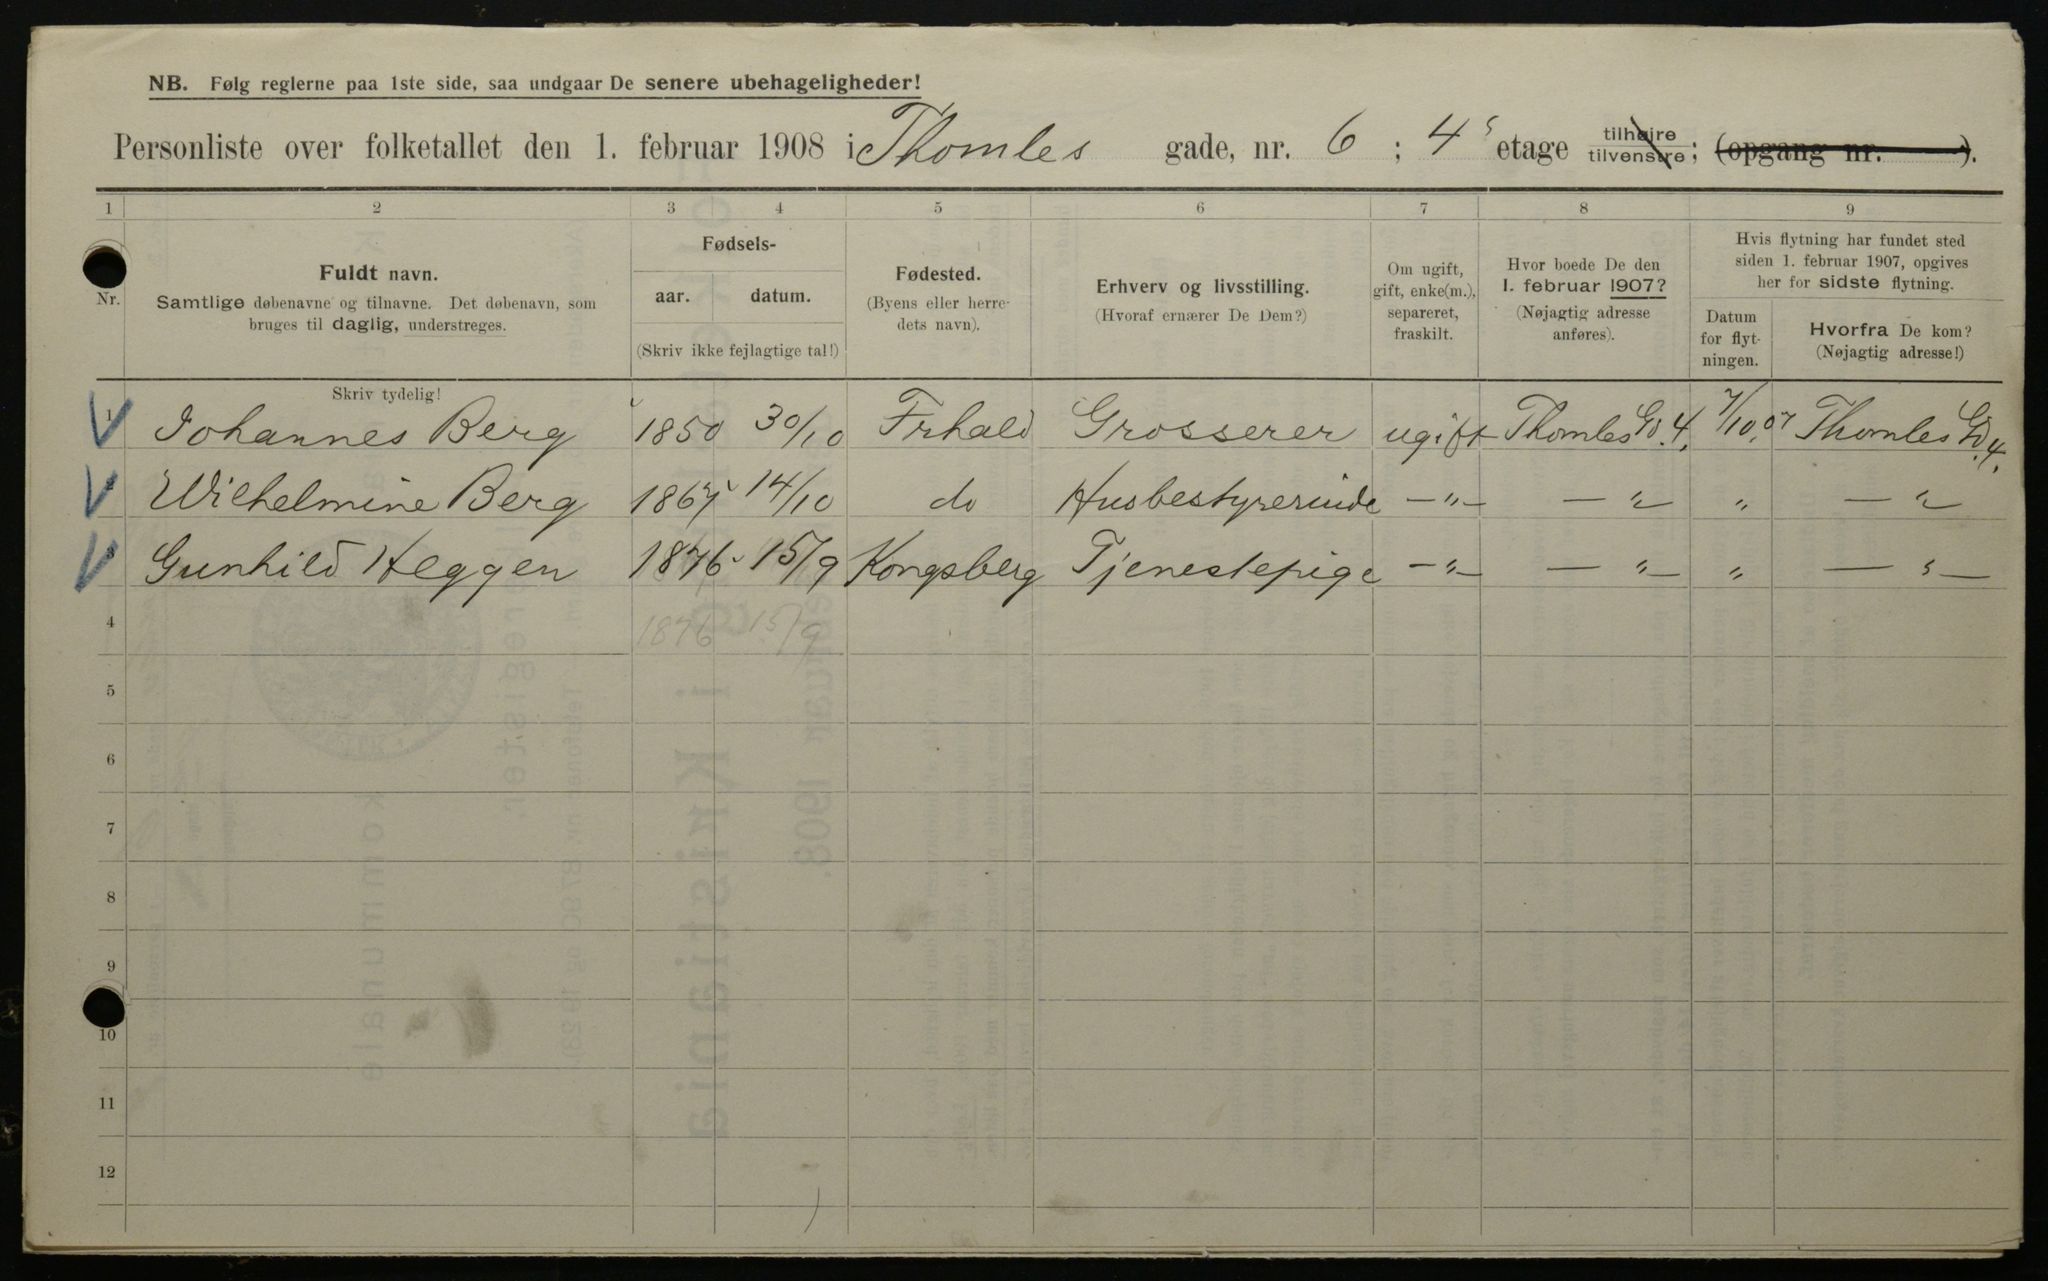 NB. Følg reglerne paa 1ste side, saa undgaar De senere ubehageligheder!
Personliste over folketallet den 1. februar 1908 i Thomles gade, nr. 6 ; 4 etage tilhøjre tilvenstre ; (opgang nr. ).
1 2 3 4 5 6 7 8 9
Nr.
Fuldt navn.
Samtlige døbenavne og tilnavne. Det døbenavn, som
bruges til daglig, understreges.
Fødsels-
aar. datum.
(Skriv ikke fejlagtige tal!)
Fødested.
(Byens eller herre-
dets navn).
Erhverv og livsstilling.
(Hvoraf ernærer De Dem?)
Om ugift,
gift, enke(m.),
separeret,
fraskilt.
Hvor boede De den
1. februar 1907?
(Nøjagtig adresse
anføres).
Hvis flytning har fundet sted
siden 1. februar 1907, opgives
her for sidste flytning.
Datum
for flyt-
ningen.
Hvorfra De kom?
(Nøjagtig adresse!)
Skriv tydelig!
1 Johannes Berg 1850 30/10 Frhald Grosserer ugift Thomles Gd. 4. /10.07 Thomles Gd. 4.
2 Wilhelmine Berg 14/10 do Husbestyrerinde —"— — " " — "
3 Gunhild Heggen 1876 15/9 Kongsberg Tjenestepige —"— — "— " — "—
4 1876 15/9
5
6
7
8
9
10
11
12